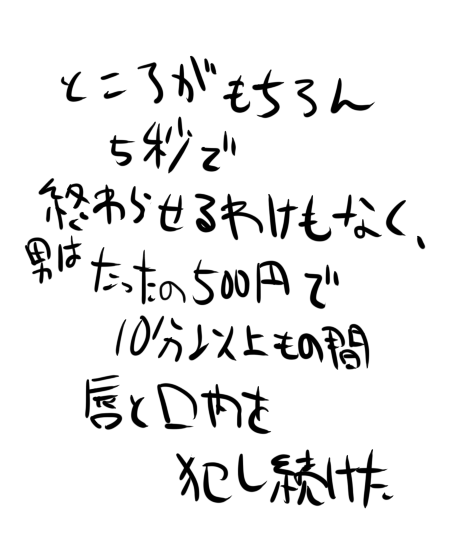 ところがもちろん
5秒で
終わらせるわけもなく、
男はたったの500円で
10分以上もの間
唇と口内を
犯し続けた